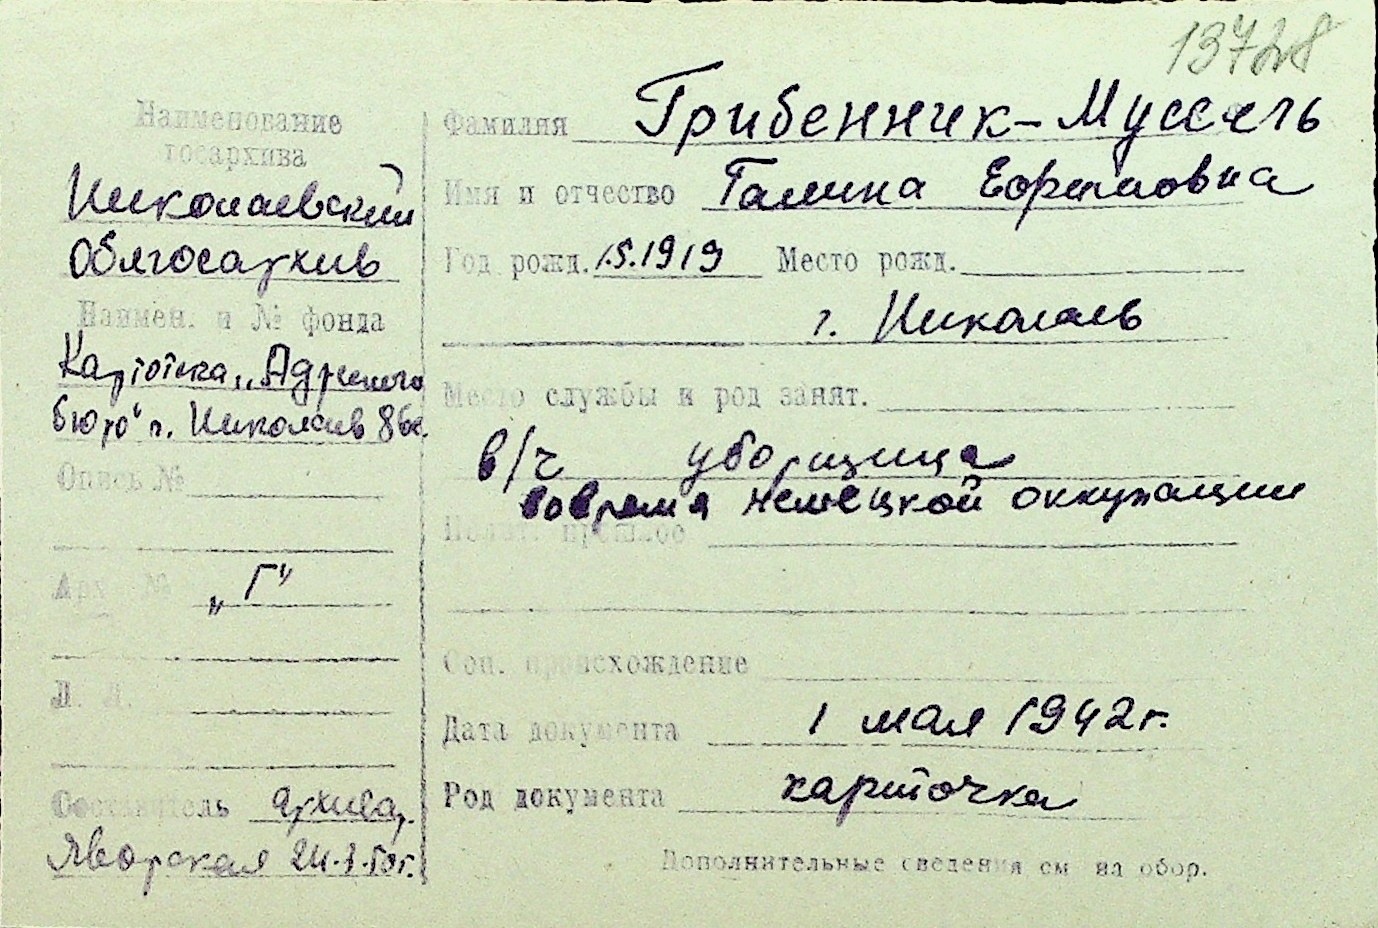 13728
Наименование
госархива
Николаевский
Облгосархив
Наимен. и № фонда
Картотека „Адресного
бюро" г. Николаев
Опись №
Арх. №
„Г"
Л. Л.
Составитель архивар.
Яворская
Фамилия Грибенник-Муссель
Имя и отчество Галина
Год рожд. 1.5.1919 Место рожд.
г. Николаев
Место службы и род занят.
в/ч уборщица
во время немецкой оккупации
Полит. прошлое
Соц. происхождение
Дата документа 1 мая 1942 г.
Род документа карточка
Дополнительные сведения см на обор.